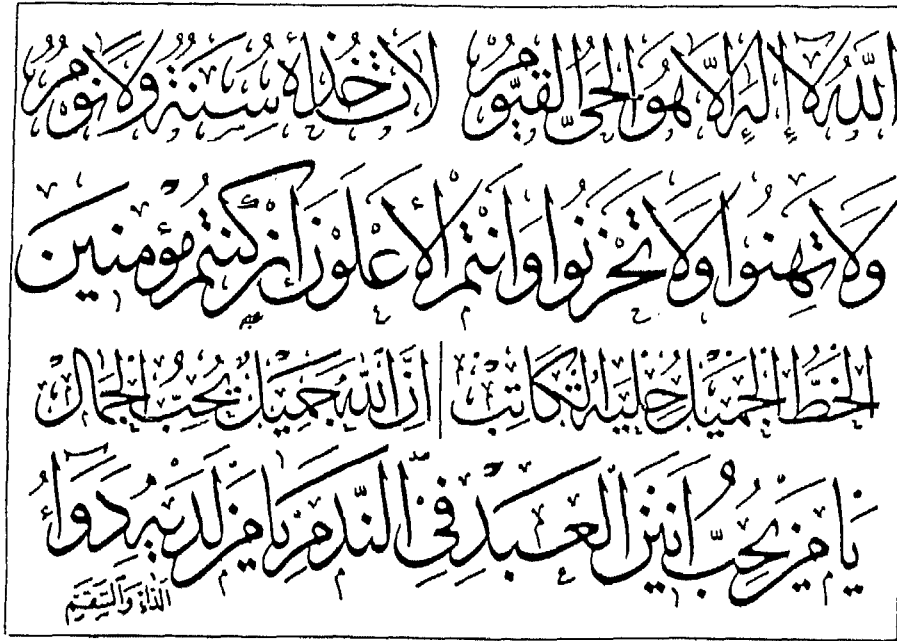 الله لا إله إلا هو الحي القيوم لا تأخذه سنة ولا نوم
ولا تهنوا ولا تحزنوا وأنتم الأعلون إن كنتم مؤمنين
الخط الجميل حلية الكاتب إن الله جميل يحب الجمال
يا من يحب أنين العبد في الندم يا من لديه دواء
الداء والسقم